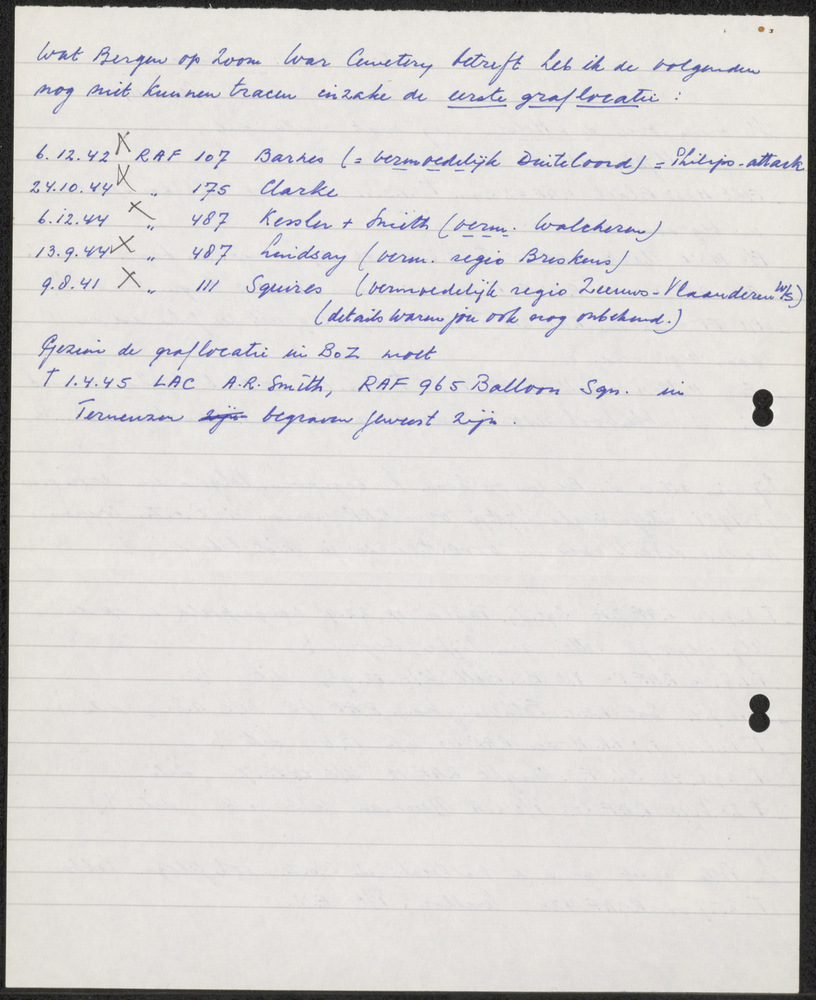 Wat Bergen op Zoom War Cemetery betreft heb ik de volgenden
nog niet kunnen tracen inzake de eerste graflocatie :
6.12.42 X RAF 107 Barnes (= vermoedelijk Duiteloord) = Philips-attack
24.10.44 X " 175 Clarke
6.12.44 X " 487 Kessler + Smith (verm. Walcheren)
13.9.44 X " 487 Lindsay (verm. regio Breskens)
9.8.41 X " 111 Squires (vermoedelijk regio Zeeuws-Vlaanderen W/S)
(details waren jou ook nog onbekend.)
Gezien de graflocatie in BoZ moet
† 1.4.45 LAC A.R. Smith, RAF 965 Balloon Sqn. in
Terneuzen zijn begraven geweest zijn.